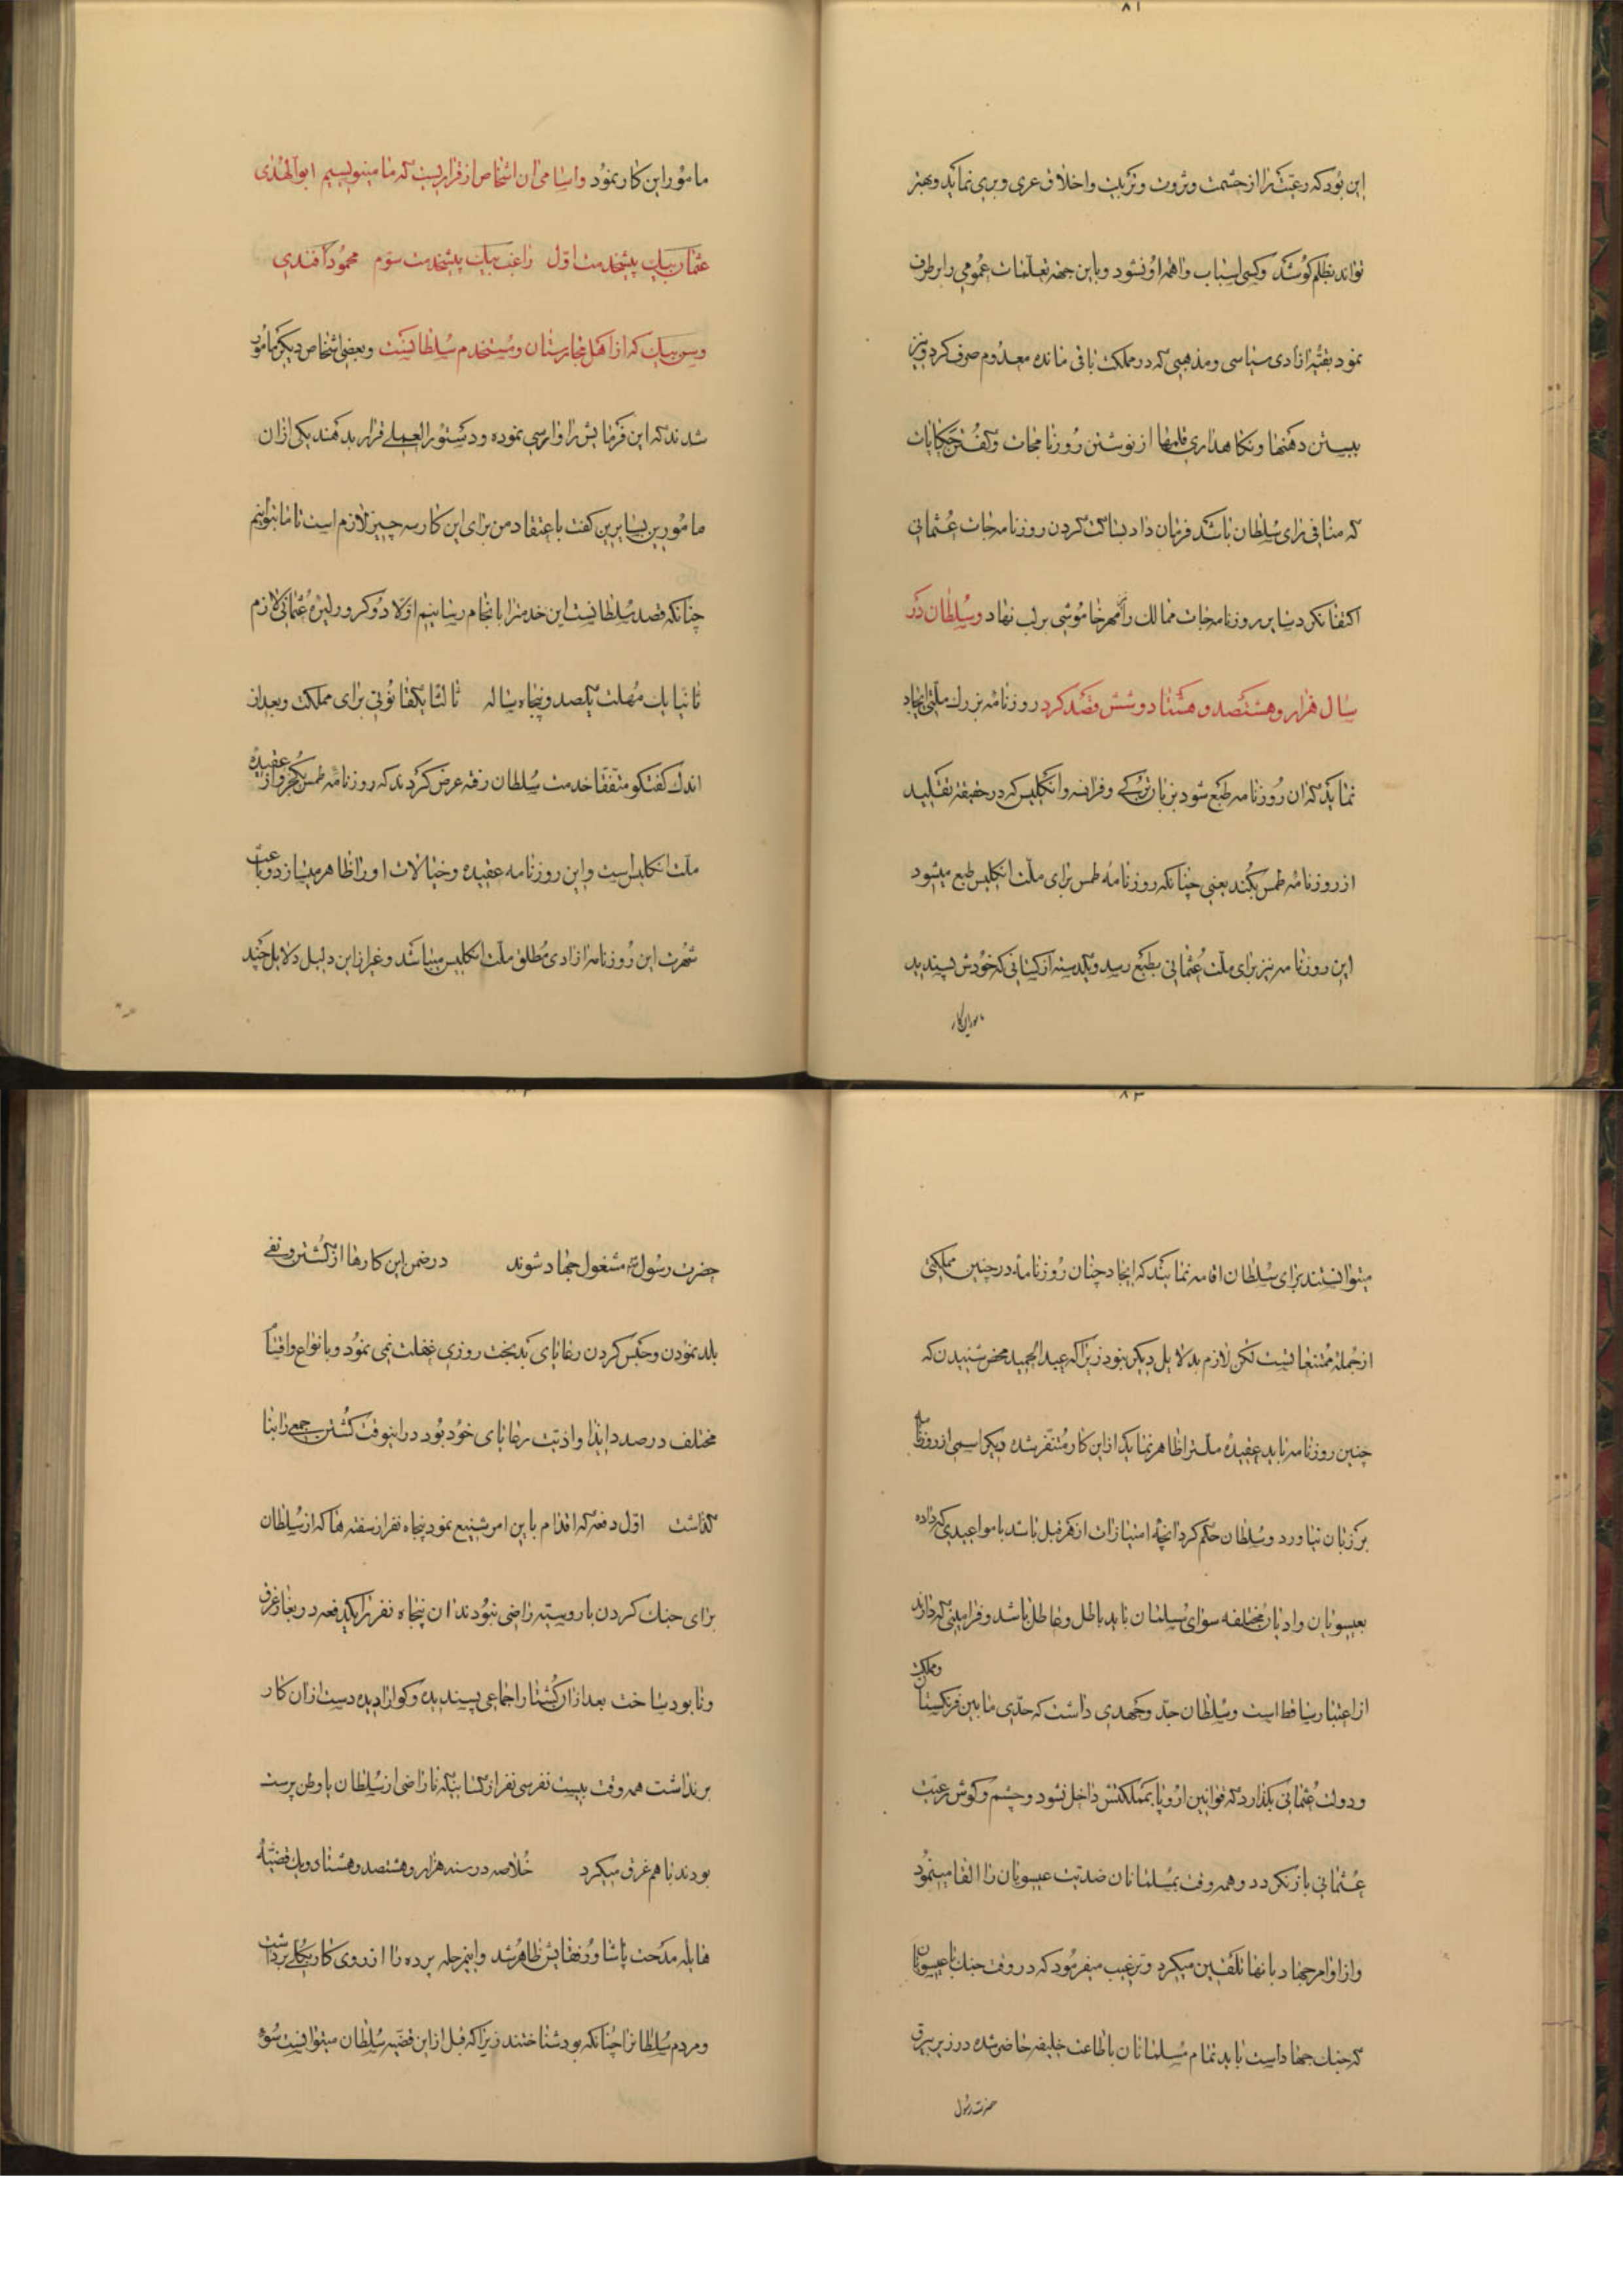 ۸۱
این بود که رعیت را از حشمت و ثروت و تربیت و اخلاق عری و بری نماید و بهتر
تواند بظلم کوشد و کسی اسباب واهمه او نشود و باین جهة تعلیمات عمومی را برطرف
نمود بقیه ازادی سیاسی و مذهبی که در مملکت باقی مانده معدوم صرف کرد و نیز
ببستن دهنها و نکاهداری قلمها از نوشتن روزنامجات و کفتن حکایات
که منافی رای سلطان باشد فرمان داد بساکت کردن روزنامه جات عثمانی
اکتفا نکرد سایر روزنامه جات ممالک را مهر خاموشی بر لب نهاد و سلطان در
سال هزار و هشتصد و هشتاد و شش قصد کرد روزنامه بزرك ملتی ایجاد
نماید که ان روزنامه طبع شود بزبان ترکی و فرانسه و انکلیس که در حقیقة تقلید
از روزنامه طمس بکند یعنی چنانکه روزنامه طمس برای ملت انکلیس طبع میشود
این روزنامه نیز برای ملت عثمانی بطبع رسد و یکدسته از کسانی که خودش پسندید
مامور این کار
مامور این کار نمود و اسامی ان اشخاص از قراریست که ما مینویسیم ابوالهدی
عثمان بیك پیشخدمت اول راغب بیك پیشخدمت سوم محمود افندی
ویس بیك که از اهل مجارستان و مستخدم سلطانیست و بعضی اشخاص دیکر مامور
شدند که این فرمایش را وارسی نموده و دستورالعملی قرار بدهند یکی از ان
مامورین بسایرین کفت باعتقاد من برای این کار سه چیز لازم است تا ما بتوانیم
چنانکه قصد سلطانیست این خدمترا بانجام رسانیم اولا دو کرور لیره عثمانی لازم
ثانیا یك مهلت یکصد و پنجاه ساله ثالثا یك قانونی برای مملکت و بعد از
اندك کفتکو متفقا خدمت سلطان رفته عرض کردند که روزنامه طمس مخبر و از عقیده
ملت انکلیس است و این روزنامه عقیده و خیالات او را ظاهر میسازد و باعث
شهرت این روزنامه ازادی مطلق ملت انکلیس میباشد و غیر از این دلیل دلایل چند
۸۳
میتوانستند برای سلطان اقامه نمایند که ایجاد چنان روزنامۀ در چنین مملکتی
از جمله ممتنعا تیست لکن لازم بدلایل دیکر نبود زیرا که عبدالحمید محض شنیدن که
چنین روزنامه باید عقیده ملت را ظاهر نماید از این کار متنفر شده دیکر اسمی از روزنامه
بر زبان نیاورد و سلطان حکم کرد انچه امتیازات از هر قبیل باشد با مواعیدی که داده
بعیسویان و ادیان مختلفه سوای مسلمان باید باطل و عاطل باشد و فرامینی که دارند
از اعتبار ساقط است و سلطان جد و جهدی داشت که حدی ما بین فرنکستان و مملکت
و دولت عثمانی بکذارد که قوانین اروپا بمملکتش داخل نشود و چشم و کوش رعیت
عثمانی باز نکردد و همه وقت بمسلمانان ضدیت عیسویان را القا مینمود
و از اوامر جهاد بانها تلقین میکرد و ترغیب میفرمود که در وقت جنك با عیسویان
که جنك جهاد است باید تمام مسلمانان باطاعت خلیفه حاضر شده در زیر بیرق
حضرت رسول
حضرت رسول مشغول جهاد شوند در ضمن این کارها از کشتن و نفی
بلد نمودن و حبس کردن رعایای بدبخت روزی غفلت نمی نمود و بانواع و اقسام
مختلف در صدد ایذا و اذیت رعایای خود بود در اینوقت کشتن جمعی را بنا
کذاشت اول دفعه که اقدام باین امر شنیع نمود پنجاه نفر از سفته ها که از سلطان
برای جنك کردن با روسیه راضی نبودند ان پنجاه نفر را یکدفعه در بغاز غرق
و نابود ساخت بعد از ان کشتار اجماعی پسندیده و کوارا دیده دست از ان کار
برنداشت همه وقت بیست نفر سی نفر از کسانیکه ناراضی از سلطان یا وطن پرست
بودند با هم غرق میکرد خلاصه در سنه هزار و هشتصد و هشتاد و یك قضیه
هایله مدحت پاشا و رفقایش ظاهر شد و اینمرحله پرده را از روی کار بکلی برداشت
و مردم سلطانرا چنانکه بود شناختند زیرا که قبل از این قضیه سلطان میتوانست سوء